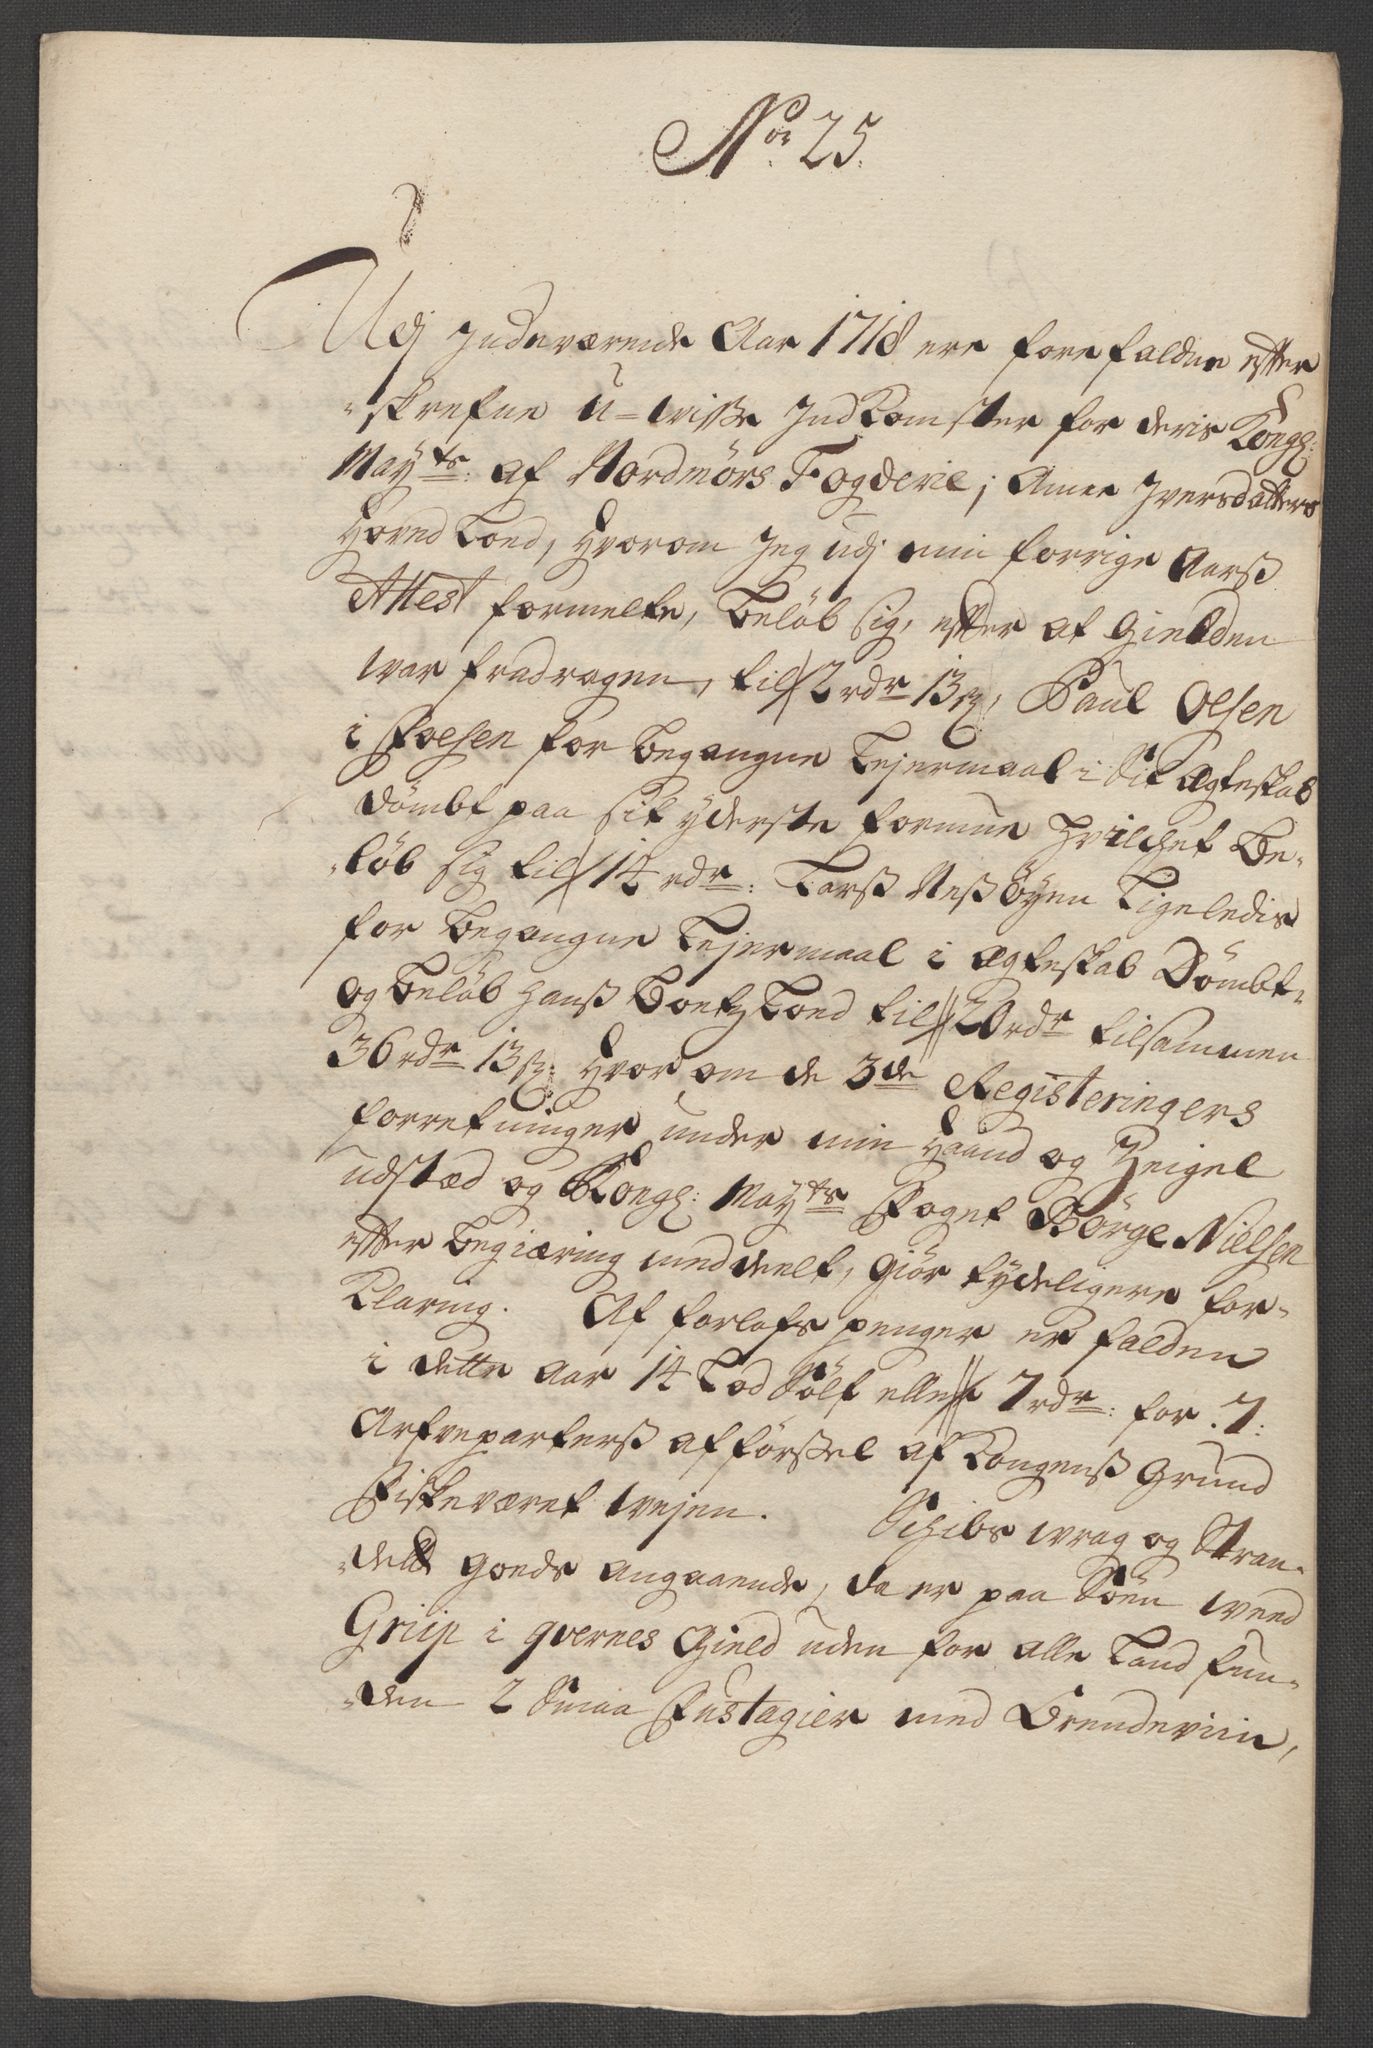 No: 25.
Udj Indeværende Aar 1718 ere forefaldne effter
-skrefne u-wisse Indkomster for deris Kongl:
Mayts: af Nordmörs Fogderie; Anne Iversdatters
Hovedlod, hvorom Jeg udj min forrige Aarss
Attest formelte, beløb sig, effter at Gielden
war fradragen, til 2 rdr 13 s, Paul Olsen
i Foesen for begangne Lejermaal i Sit Ægteskab
dömbt paa sit yderste formue hvilchet be-
-löb sig til 14 rdr: Larss Nessöyen Ligeledis
for begangne Lejermaal i Ægteskab Dömbt-
og beløb hanss Boetz Lod til 20 rdr tilsammen
36 rdr 13 s: hvor om de 3de Registerings
forretninger under min Haand og Zeigel
udstæd og Kongl: Mayts Foget Börge Nielsen
effter begiæring meddeelt, giör tydeligere for-
klaring. Af forlofs penger er falden
i dette Aar 14 Lod Sölf eller 7 rdr: for 7.
Arfveparterss afförssel af Kongenss Grund
Fiskeværet Wejen. Schibs wrag og Stran-
-dett goeds angaaende, da er paa Söen wed
Griip i Qvernes Gield uden for alle Land fun-
-den 2 Smaa Fustagier med Brendeviin,